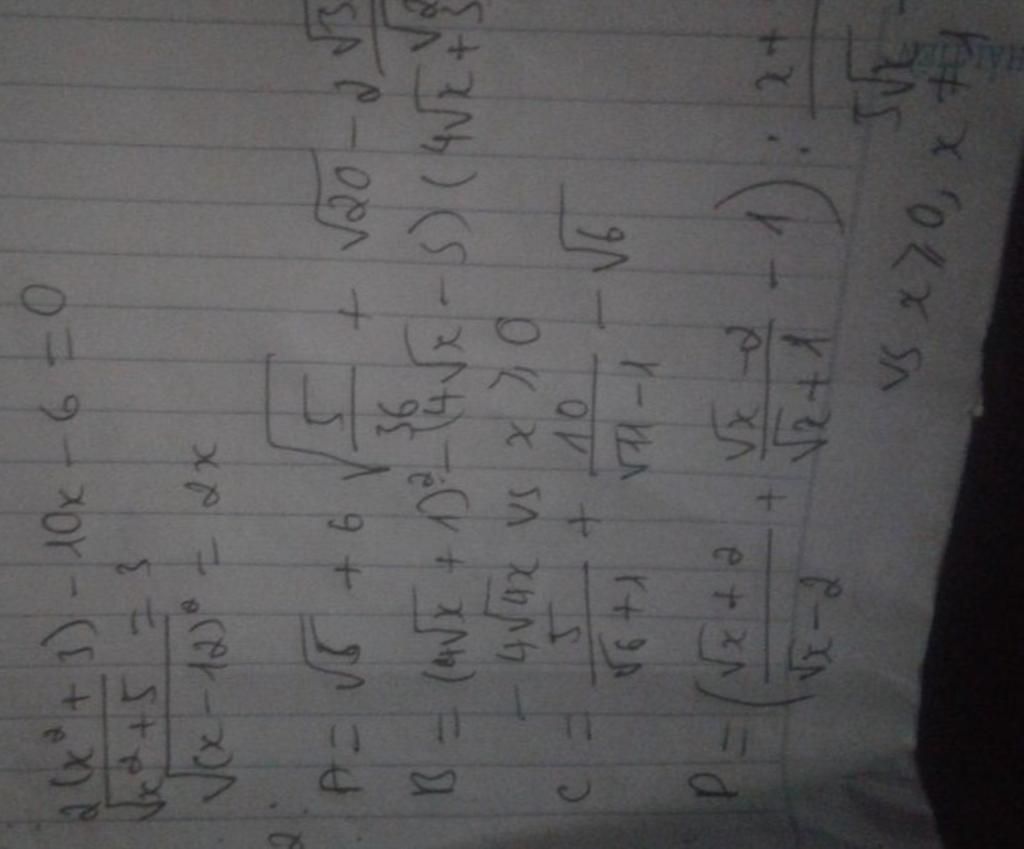 2(x² + 3) - 10x - 6 = 0
√(x² + 5) = 3
√((x - 12)²) = 2x
2.
A = √5 + 6√(5/36) + √20 - 2
B = (4√x + 1)² - (4√x - 5)(4√x + 3)
- 4√4x vs x ⩾ 0
C = 5/(√6 + 1) + 10/(√11 - 1) - √6
P = ((√x + 2)/(√x - 2) + (√x - 2)/(√x + 1) - 1) : x +
vs x ⩾ 0, x ≠